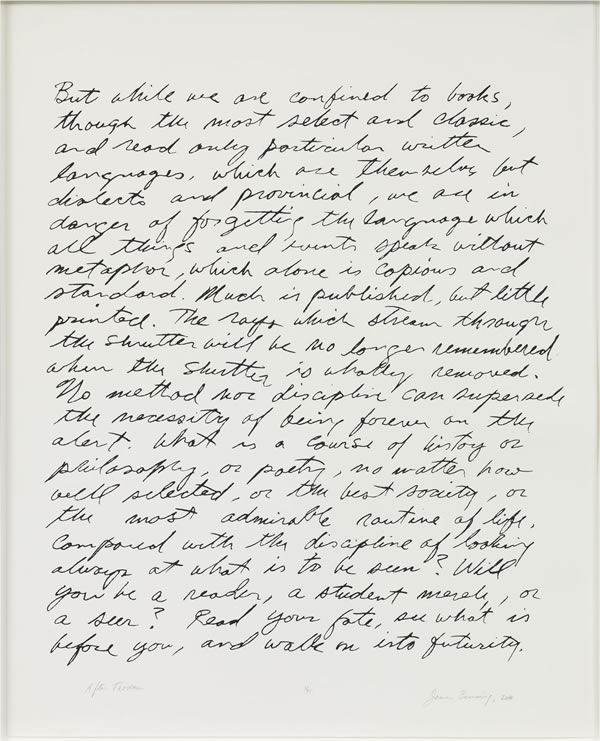 But while we are confined to books,
though the most select and classic,
and read only particular written
languages, which are themselves but
dialects and provincial, we are in
danger of forgetting the language which
all things and events speak without
metaphor, which alone is copious and
standard. Much is published, but little
printed. The rays which stream through
the shutter will be no longer remembered
when the shutter is wholly removed.
No method nor discipline can supersede
the necessity of being forever on the
alert. What is a course of history or
philosophy, or poetry, no matter how
well selected, or the best society, or
the most admirable routine of life,
compared with the discipline of looking
always at what is to be seen? Will
you be a reader, a student merely, or
a seer? Read your fate, see what is
before you, and walk on into futurity.
After Thoreau James Benning,